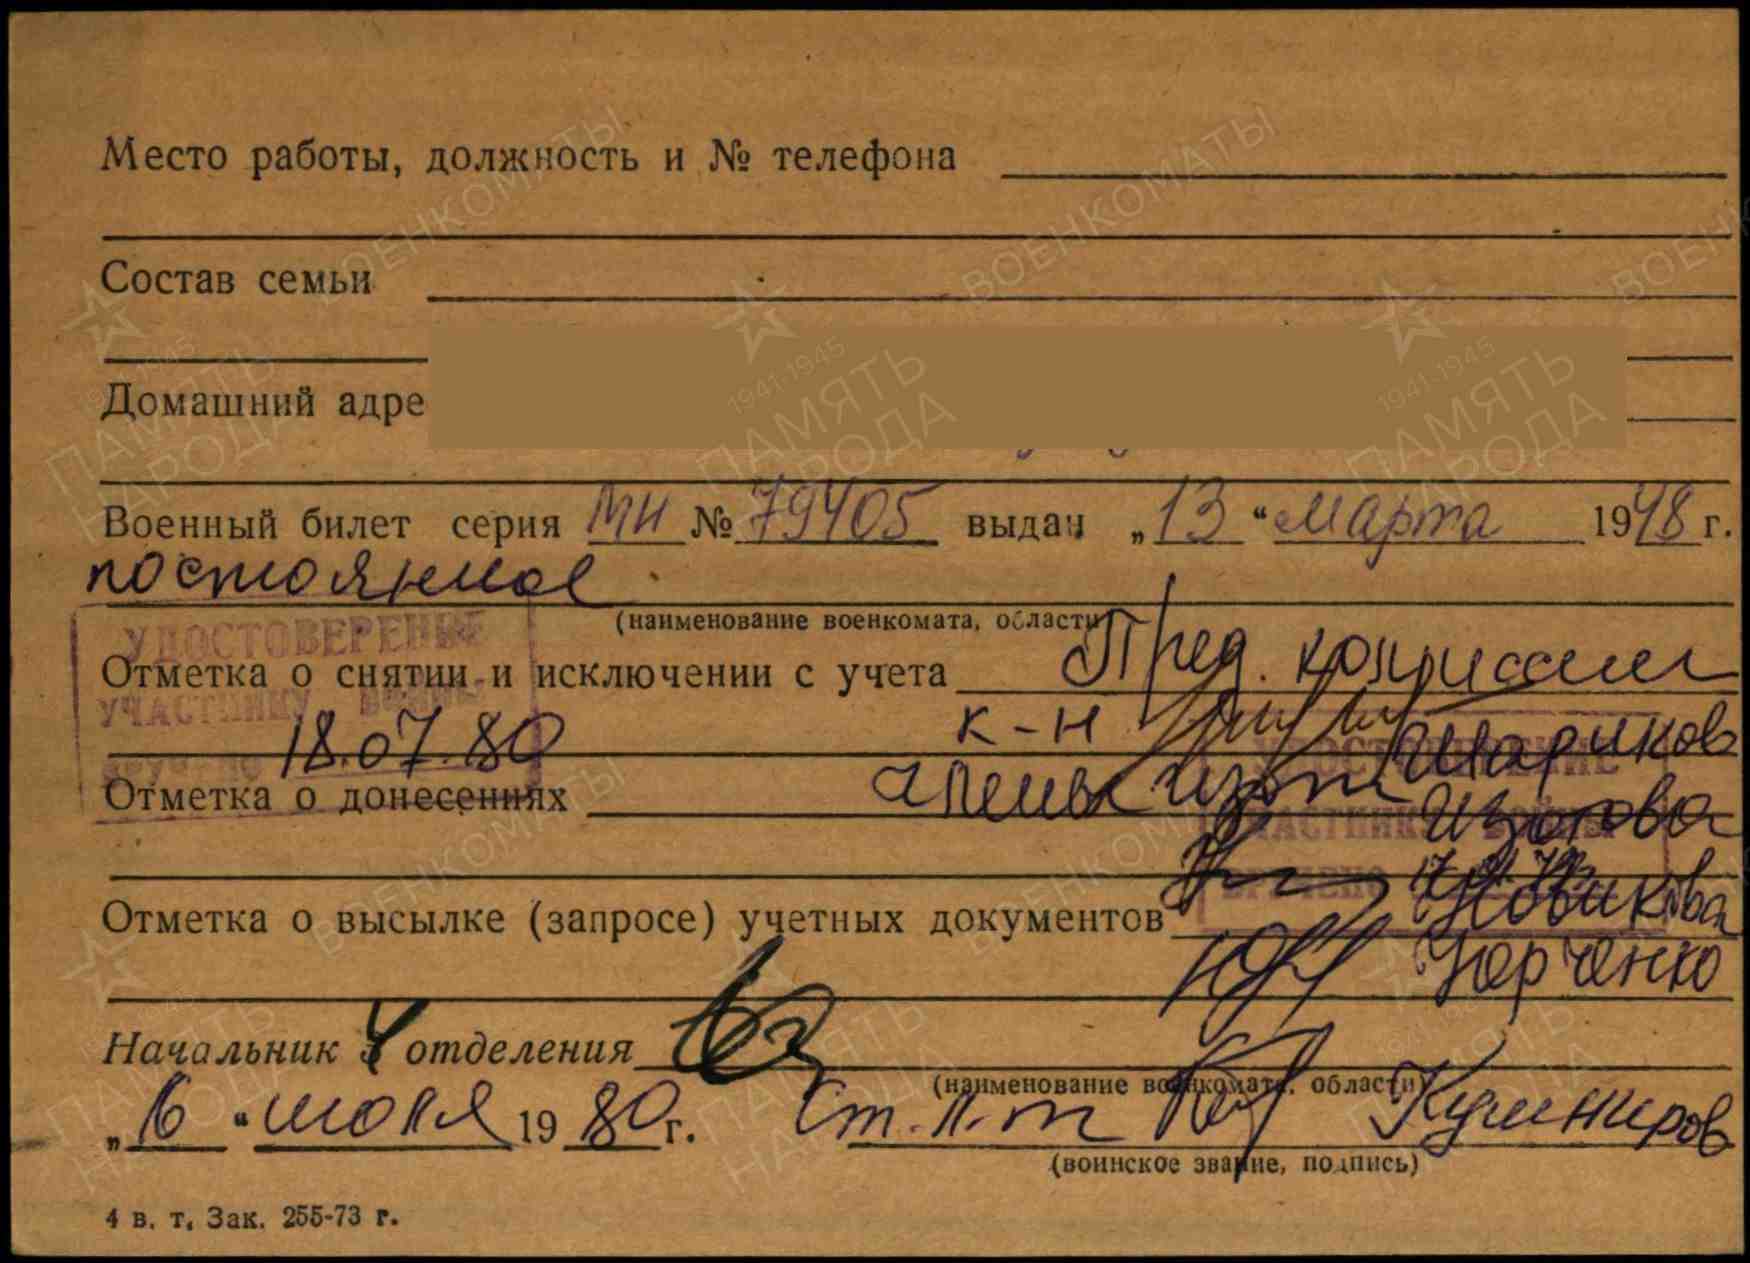 Место работы, должность и № телефона
Состав семьи
Домашний адре
Военный билет серия МН № 79405 выдан „13“ марта 1948 г.
постоянное
(наименование военкомата, области)
УДОСТОВЕРЕНИЕ
Отметка о снятии и исключении с учета Пред. комиссии
УЧАСТНИКУ ВОЙНЫ
18.07.80 к-н Шариков
ВРУЧЕНО
УДОСТОВЕРЕНИЕ
Отметка о донесениях члены Изотова
УЧАСТНИКУ ВОЙНЫ
ВРУЧЕНО
Новикова
Отметка о высылке (запросе) учетных документов
Юрченко
Начальник 4 отделения
(наименование военкомата, области)
„16“ июля 1980 г. Ст. л-т Кушниров
(воинское звание, подпись)
4 в. т. Зак. 255-73 г.
1941-1945
ПАМЯТЬ
НАРОДА
ВОЕНКОМАТЫ